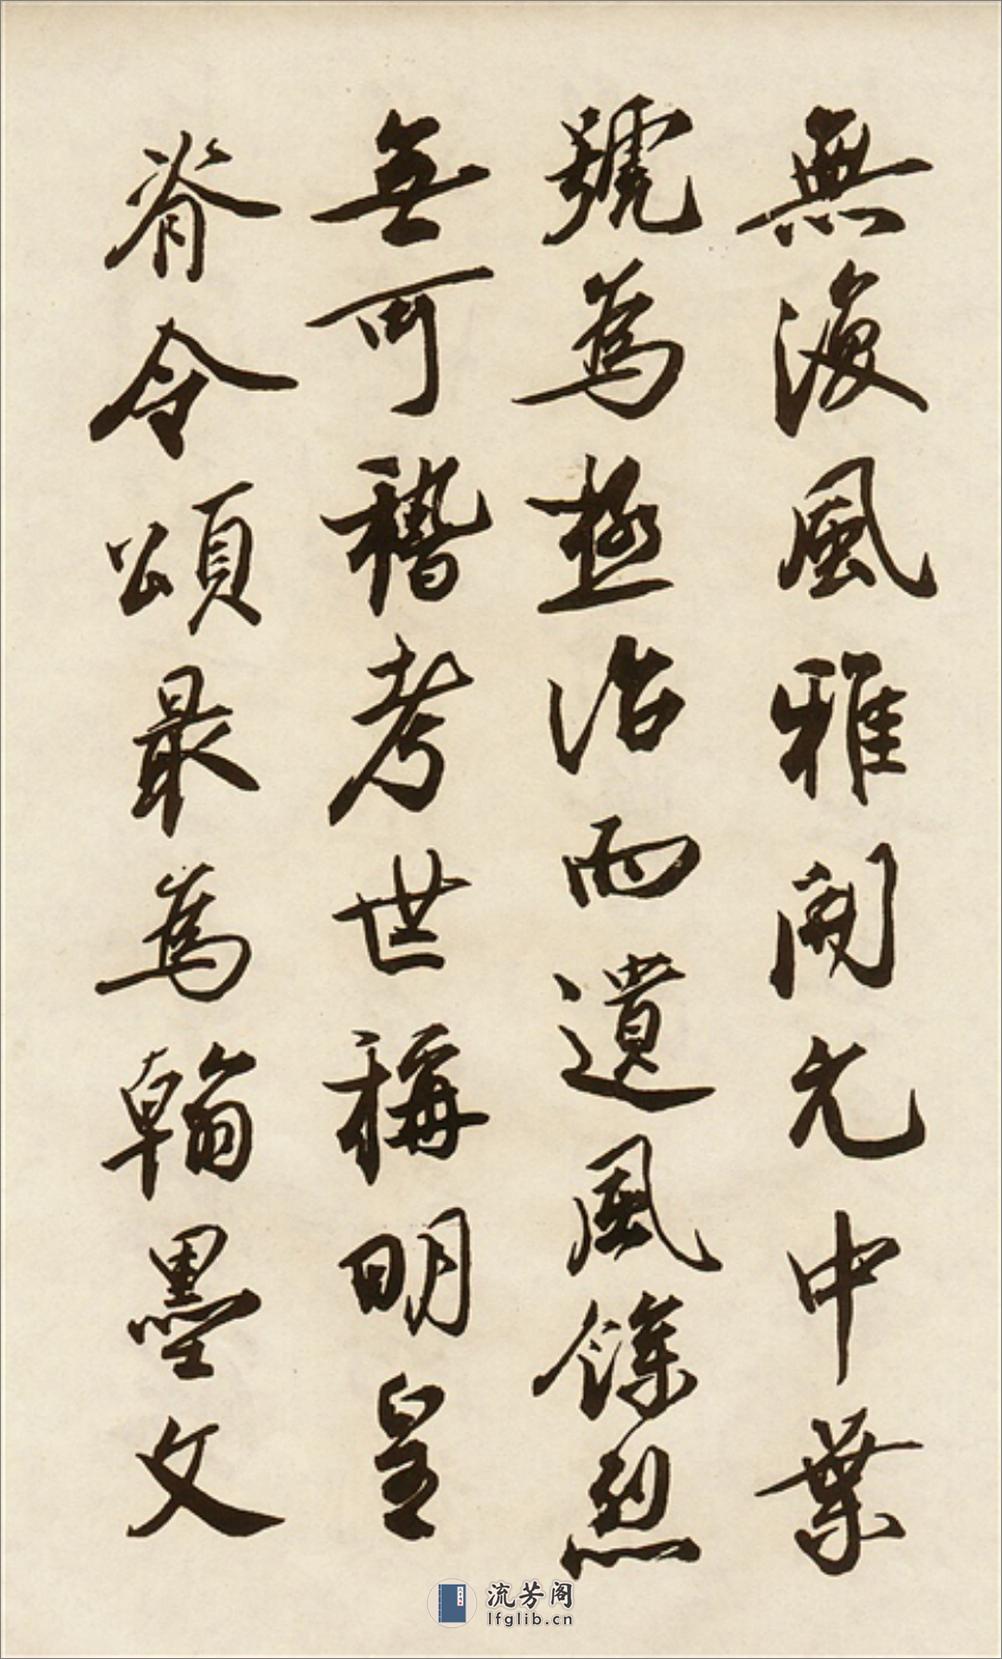 無復風雅開元中葉
號為極治而遺風餘烈
無可稽考世稱明皇
脊令頌最為翰墨文
流芳阁
lfglib.cn